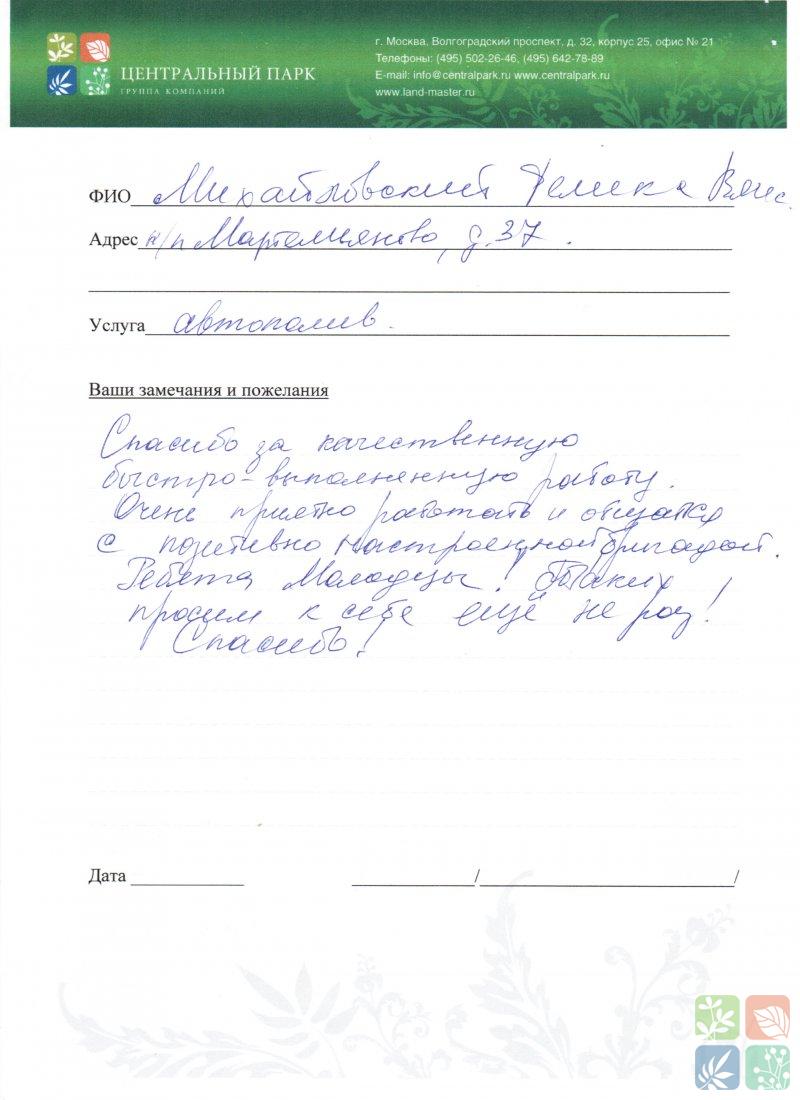 ЦЕНТРАЛЬНЫЙ ПАРК
ГРУППА КОМПАНИЙ
г. Москва, Волгоградский проспект, д. 32, корпус 25, офис № 21
Телефоны: (495) 502-26-46, (495) 642-78-89
E-mail: info@centralpark.ru www.centralpark.ru
www.land-master.ru
ФИО Михайловский
Адрес к/п Мартемияново, д. 37.
Услуга автополив.
Ваши замечания и пожелания
Спасибо за качественную
быстро-выполненную работу.
Очень приятно работать и общатся
с позитивно настроенной бригадой.
Ребята Молодцы! Таких
просим к себе ещё не раз!
Спасибо!
Дата / /